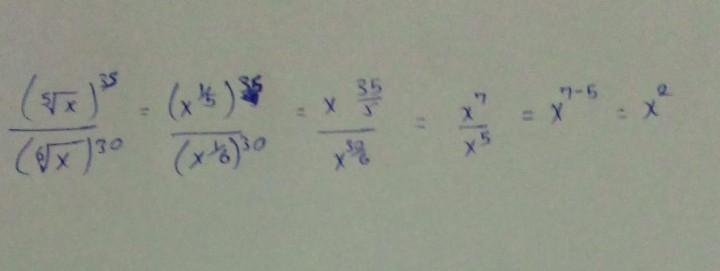 (⁵√x)³⁵ / (⁶√x)³⁰ = (x^{1/5})³⁵ / (x^{1/6})³⁰ = x^{35/5} / x^{30/6} = x⁷ / x⁵ = x⁷⁻⁵ = x²